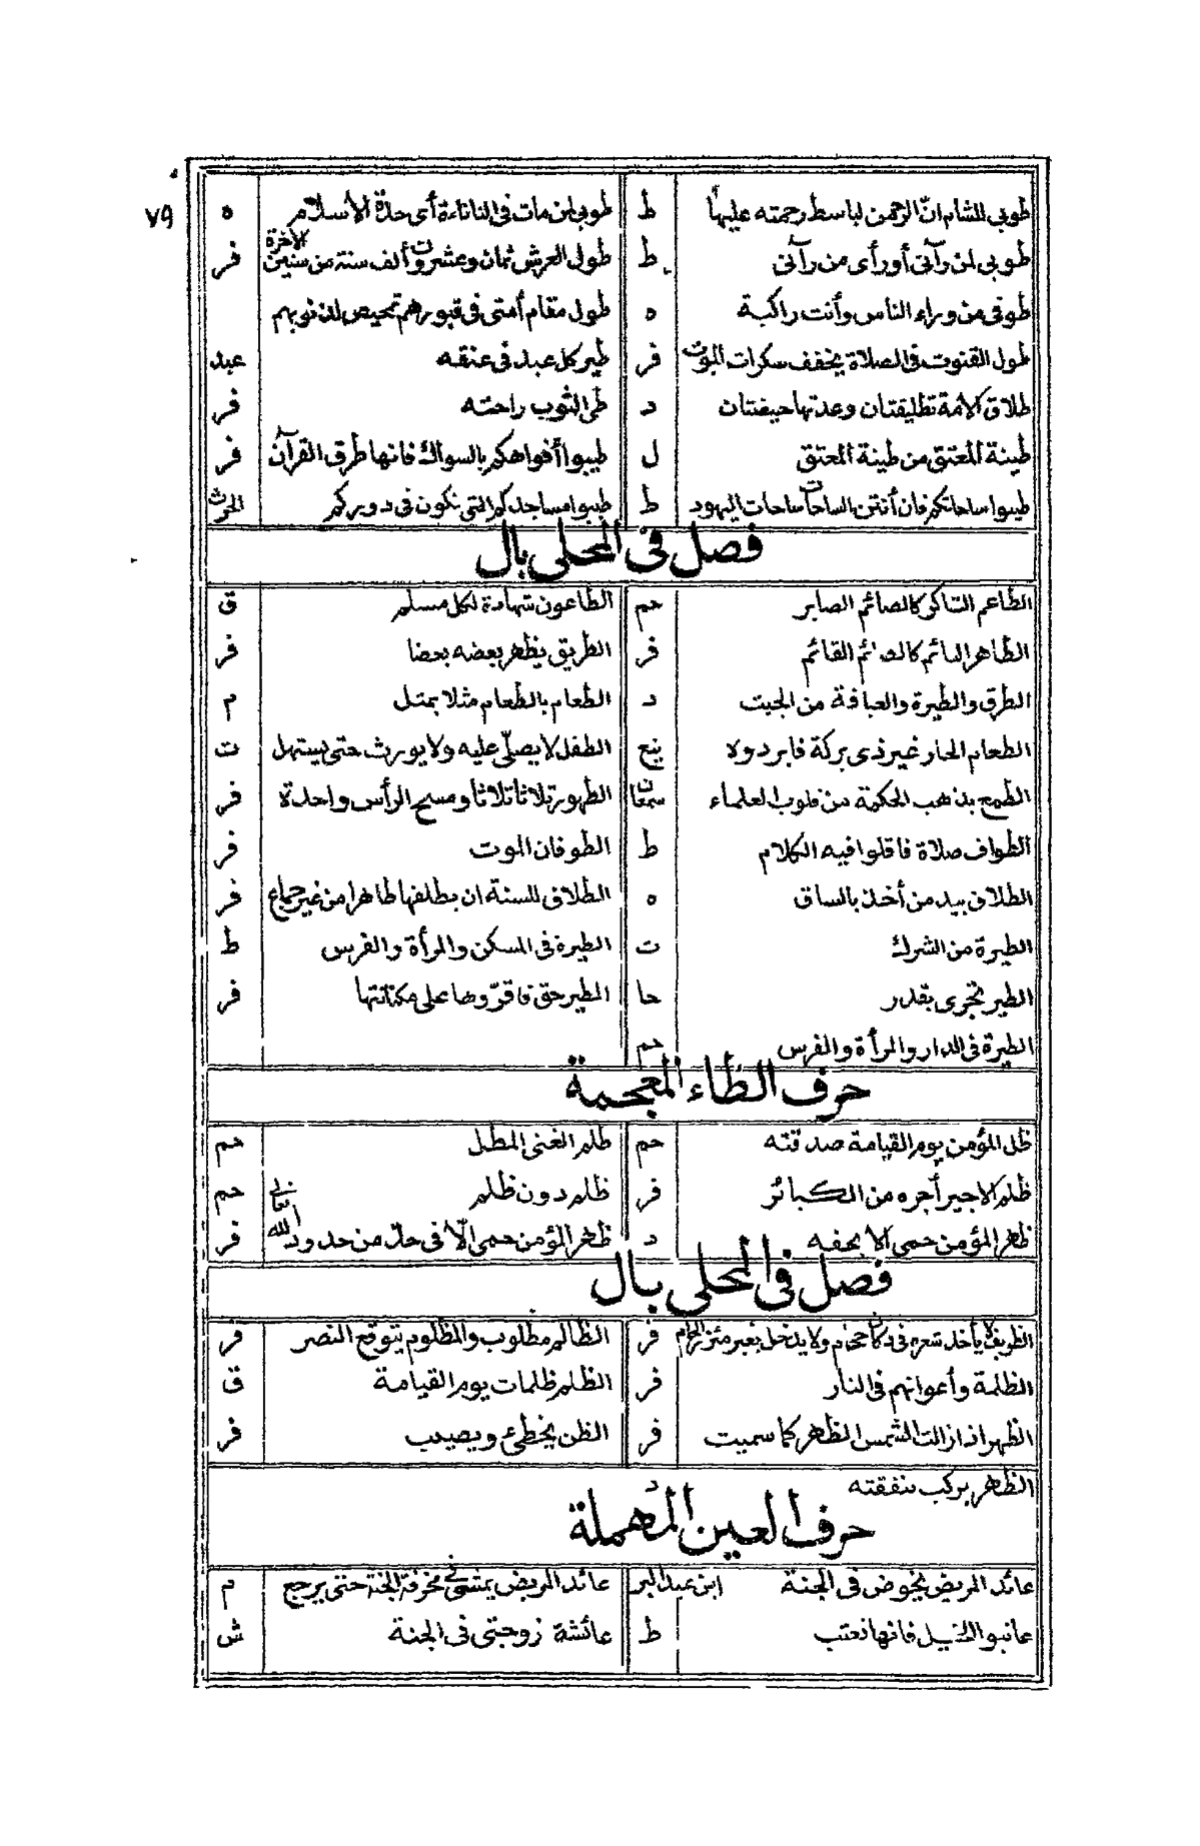 ٧٩
طوبى للشام انّ الرحمن لباسط رحمته عليها ط طوبى لمن مات فى النانأة أى حدّة الاسلام ه
طوبى لمن رآنى أو رأى من رآنى ط طول العرش ثمان وعشرون ألف سنة من سنين الآخرة فر
طوفى من وراء الناس وأنت راكبة ه طول مقام أمتى فى قبورهم تمحيص لذنوبهم
طول القنوت فى الصلاة يخفف سكرات الموت فر طير كل عبد فى عنقه عبد
طلاق الامة تطليقتان وعدتها حيضتان د طى الثوب راحته فر
طينة المعتق من طينة المعتق ل طيبوا أفواهكم بالسواك فانها طرق القرآن فر
طيبوا ساحاتكم فان أنتن الساحات ساحات اليهود ط طيبوا مساجدكم التى تكون فى دوركم الحرث
فصل فى المحلى بال
الطاعم الشاكر كالصائم الصابر حم الطاعون شهادة لكل مسلم ق
الطاهر النائم كالصائم القائم فر الطريق يظهر بعضه بعضا فر
الطرق والطيرة والعيافة من الجبت د الطعام بالطعام مثلا بمثل م
الطعام الحار غير ذى بركة فابردوه ينع الطفل لا يصلّى عليه ولا يورث حتى يستهل ت
الطمع يذهب الحكمة من قلوب العلماء سمعان الطهور ثلاثا ثلاثا ومسح الرأس واحدة فر
الطواف صلاة فاقلوا فيه الكلام ط الطوفان الموت فر
الطلاق بيد من أخذ بالساق ه الطلاق للسنة ان يطلقها طاهرا من غير جماع فر
الطيرة من الشرك ت الطيرة فى المسكن والمرأة والفرس ط
الطير تجرى بقدر حا الطير حق فاقرّوها على مكناتها فر
الطيرة فى الدار والمرأة والفرس حم
حرف الظاء المعجمة
ظل المؤمن يوم القيامة صدقته حم ظلم الغنى المطل حم
ظلم الاجير أجره من الكبائر فر ظلم دون ظلم حم
ظهر المؤمن حمى الا بحقه د ظهر المؤمن حمى الّا فى حدّ من حدود الله تعالى فر
فصل فى المحلى بال
الظريف لا يأخذ شعره فى دكان حجام ولا يدخل بغير مئزر الحمام فر الظالم مطلوب والمظلوم يتوقع النصر فر
الظلمة وأعوانهم فى النار فر الظلم ظلمات يوم القيامة ق
الظهر اذا زالت الشمس الظهر كما سميت فر الظن يخطئ ويصيب فر
الظهر يركب بنفقته د
حرف العين المهملة
عائد المريض يخوض فى الجنة ابن عبد البر عائد المريض يمشى فى مخرفة الجنة حتى يرجع م
عاتبوا الخيل فانها تعتب ط عائشة زوجتى فى الجنة ش